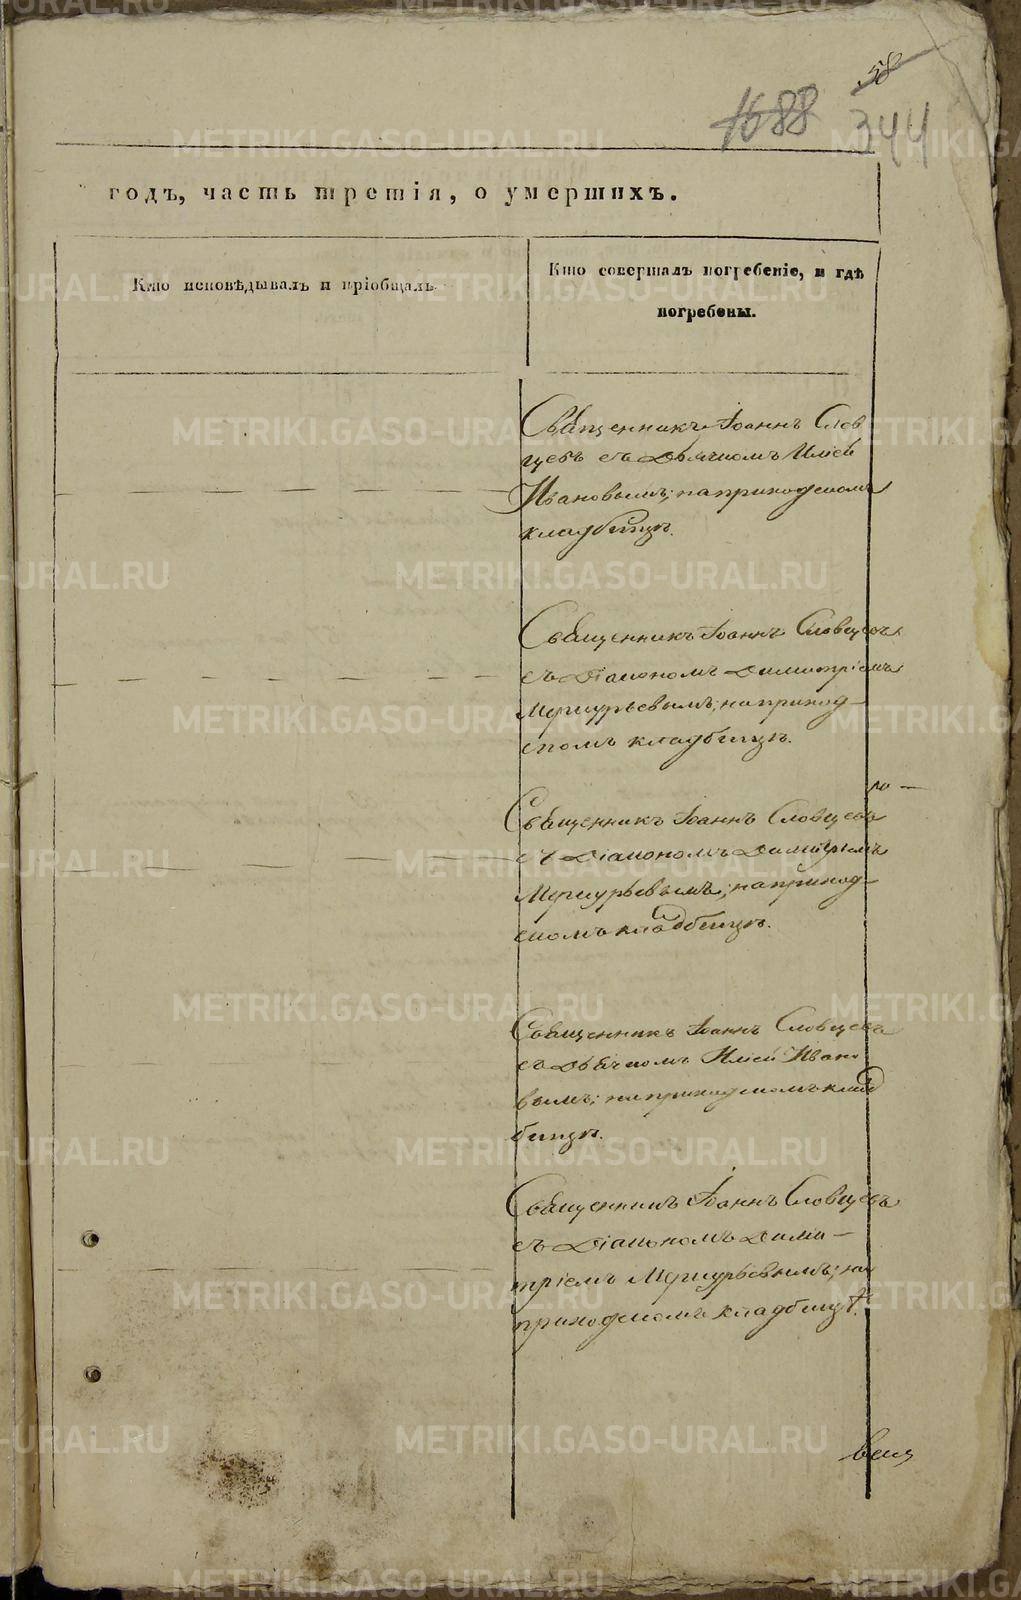 58
1688 344
годъ, часть третія, о умершихъ.
Кто исповѣдывалъ и пріобщалъ
Кто совершалъ погребеніе, и гдѣ
погребены.
Священникъ Іоаннъ Слов
цевъ съ Дьячкомъ Иліей
Ивановымъ; на приходскомъ
кладбищѣ.
Священникъ Іоаннъ Словцевъ
съ Діакономъ Димитріемъ
Меркурьевымъ; на приход-
скомъ кладбищѣ.
Священникъ Іоаннъ Словцевъ
съ Діакономъ Димитріемъ
Меркурьевымъ; на приход-
скомъ кладбищѣ.
Священникъ Іоаннъ Словцевъ
съ Дьячкомъ Иліей Ивано
вымъ; на приходскомъ клад
бищѣ.
Священникъ Іоаннъ Словцевъ
съ Діакономъ Дими-
тріемъ Меркурьевымъ; на
приходскомъ кладбищѣ.
METRIKI.GASO-URAL.RU